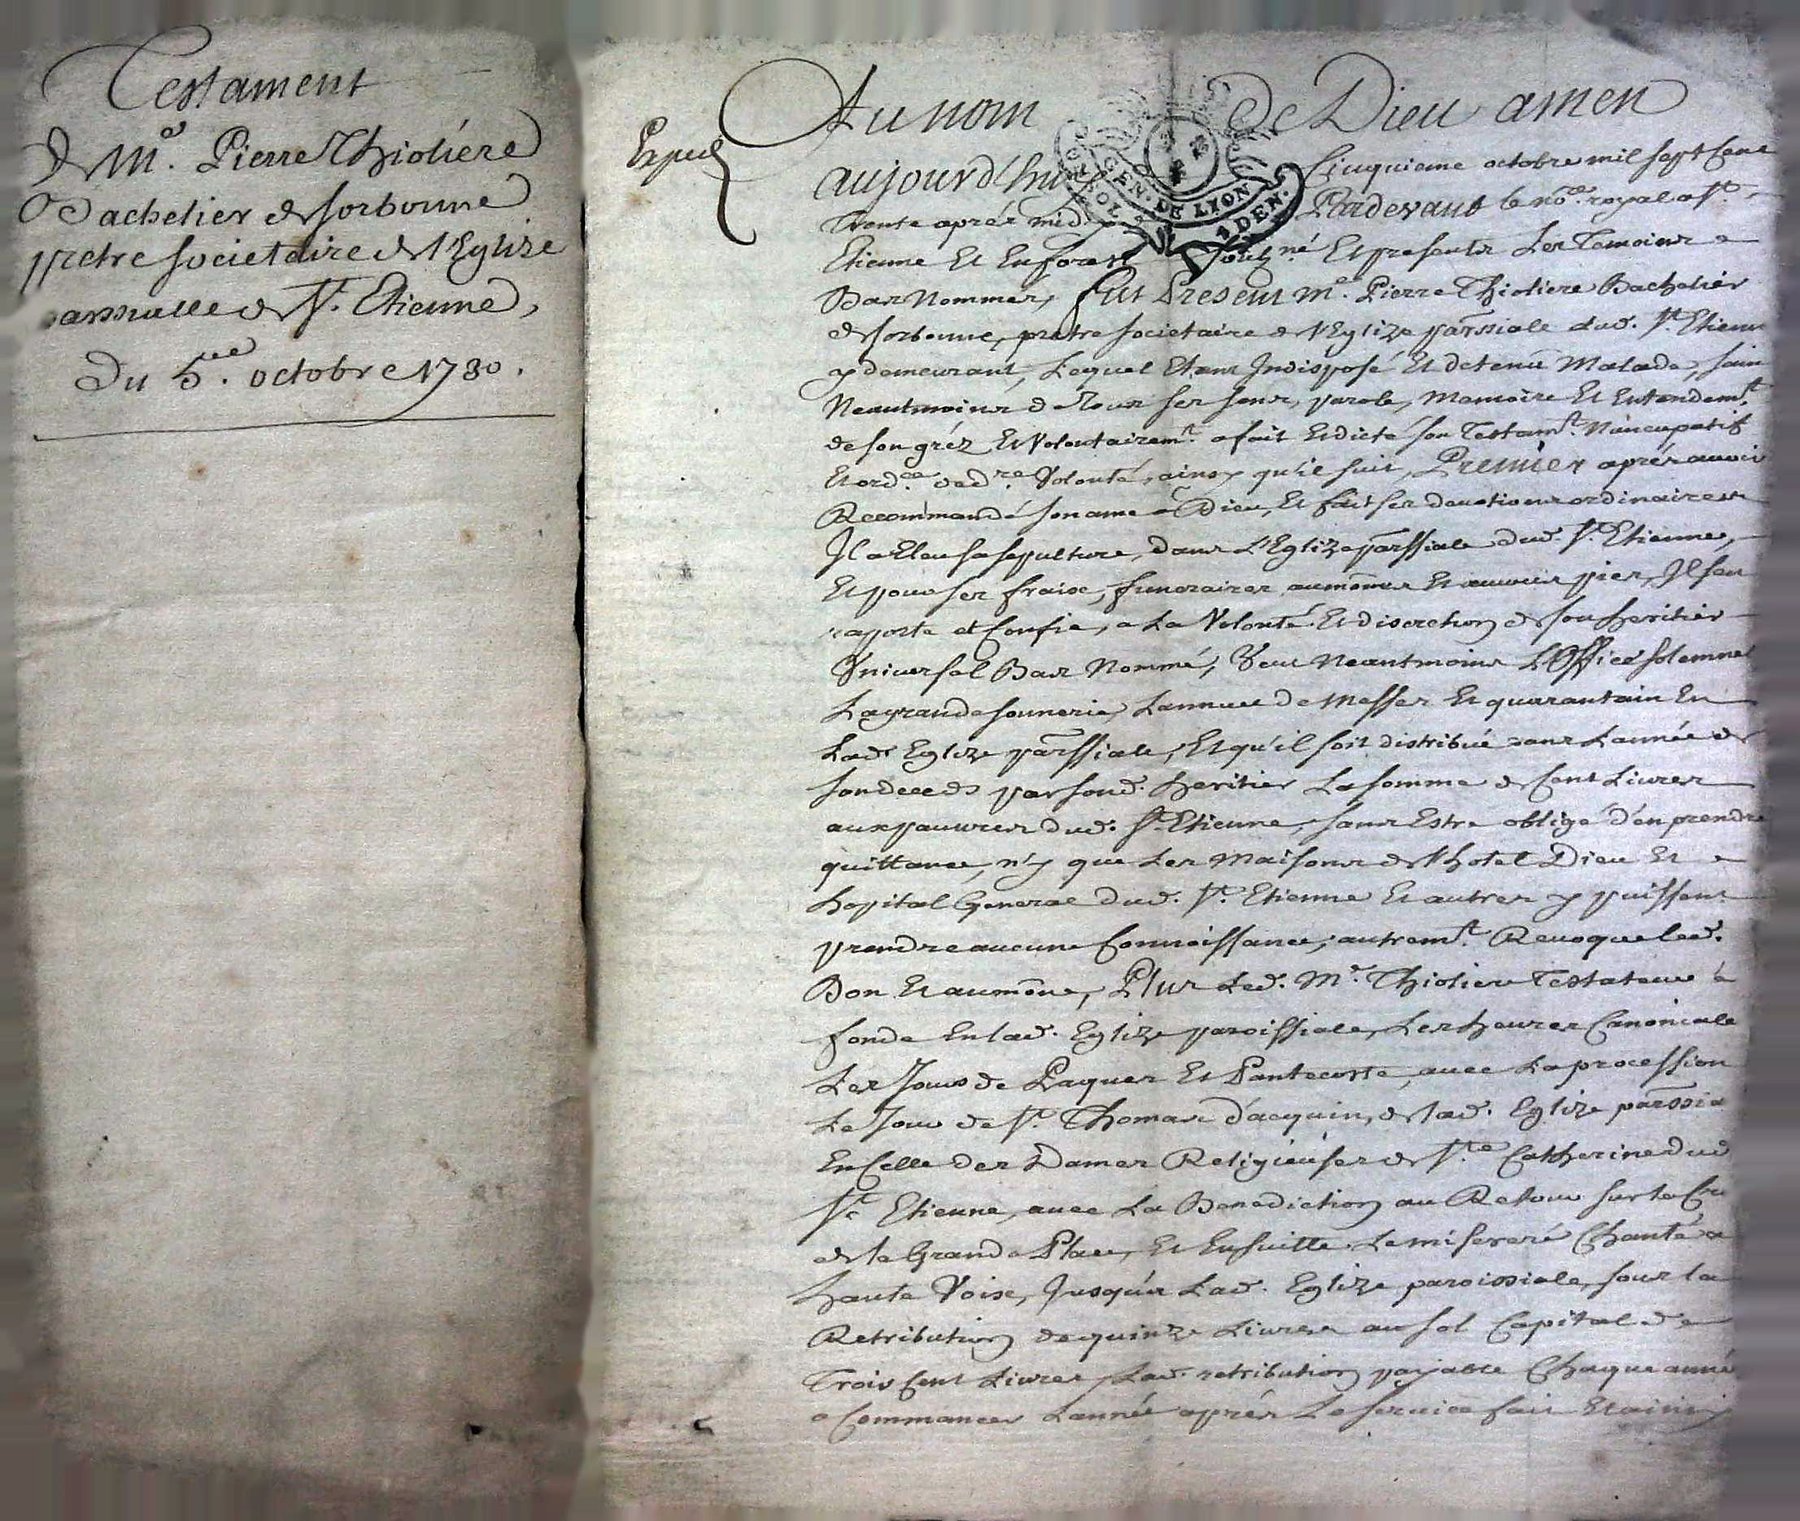 Testament
de Mr. Pierre Thioliére
Bachelier de sorbonne
pretre societaire de l'Eglize
parssialle de St. Etienne,
Du 5.ee octobre 1730.
Expedié
Au nom de Dieu amen
aujourd'huy Cinquieme octobre mil sept Cent
Trente aprés midy Pardevant le nore. royal a St.
Etienne Et En forest soubsigné Et presents Les Temoins
Bas Nommes, fut Present Mr. Pierre Thioliere Bachelier
de sorbonne, pretre societaire de l'Eglize parssiale dud. St. Etienne
y demeurant, Lequel Etant Indisposé Et detenu Malade, sain
Neantmoins de Tous ses sens, parole, Memoire Et Entendemt.
de son gréz Et Volontairemt. a fait Et dicté son Testamt. Nuncupatif
Et ordce. de dre. Volonté, ainsy qu'il suit, Premier aprés avoir
Recommandé son ame a Dieu, Et fait ses devotions ordinaires
Il a Eleu sa sepulture, dans L'Eglize parssiale dud. St. Etienne,
Et pour ses fraix, funeraires aumônes Et œuvres pies, Il s'en
raporte et Confie, a La Volonté Et discretion de son heritier
Universel Bas Nommé, Veut Neantmoins L'Office solemnel
La grande sonnerie, Lannuel de Messes Et quarantain En
Lad. Eglize parssiale, Et qu'il soit distribué dans Lannée de
son deceds par sond. heritier La somme de Cent Livres
aux pauvres dud. St. Etienne, sans Estre obligé d'en prendre
quittance, n'y que Les Maisons de l'hotel Dieu Et
hopital General dud. St. Etienne Et autres y puissent
prendre aucune Connoissance, autremt. Revoque led.
Don Et aumône, Plus Led. Mr. Thioliere Testateur à
fondé En lad. Eglize paroissiale, Les heures Canoniale
Les Jours de Paques Et Pantecoste, avec La procession
Le Jour de St. Thomas d'acquin, de lad. Eglize parssia
En Celle des Dames Religieuses de Ste. Catherine dud
St. Etienne, avec La Benediction au Retour sur la Cr
de la Grande Place, Et Ensuitte Le miseréré Chanté a
haute Voix, Jusqu'en Lad. Eglize paroissiale, sous la
Retribution de quinze Livres au sol Capital de
Trois Cent Livres, Lad. retribution payable Chaque anné
a Commancer Lannée aprés Le service fait Et ainsi
GEN. DE LYON